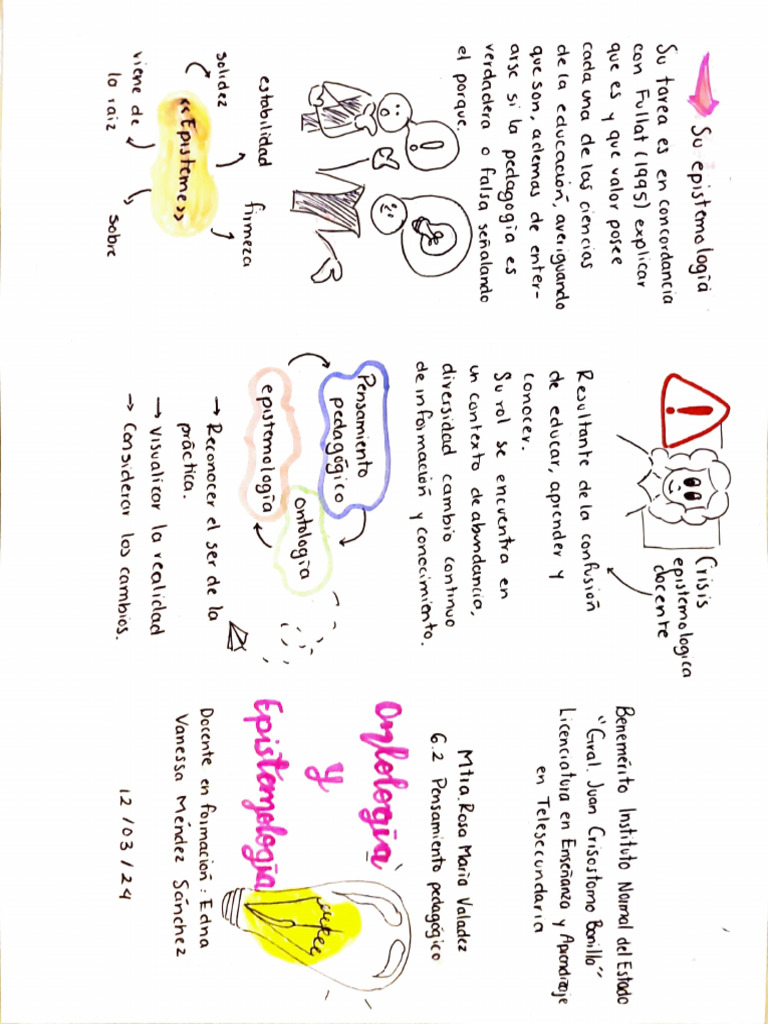 Su epistemología
Su tarea es en concordancia
con Fullat (1995) explicar
que es y que valor posee
cada una de las ciencias
de la educación, averiguando
que son, ademas de enter-
arse si la pedagogía es
verdadera o falsa señalando
el porque.
estabilidad
firmeza
solidez
«Episteme»
viene de
la raiz
sobre
Crisis
epistemologica
docente
Resultante de la confusión
de educar, aprender y
conocer.
Su rol se encuentra en
un contexto de abundancia,
diversidad cambio continuo
de información y conocimiento.
Pensamiento
pedagógico
ontología
epistemología
→ Reconocer el ser de la
práctica.
→ Visualizar la realidad
→ Considerar los cambios.
Benemérito Instituto Normal del Estado
"Gral. Juan Crisostomo Bonilla"
Licenciatura en Enseñanza y Aprendizaje
en Telesecundaria
Mtra. Rosa Maria Valadez
6.2 Pensamiento pedagógico
Ontología
y
Epistemología
Docente en formación: Edna
Vanessa Méndez Sánchez
12/03/24